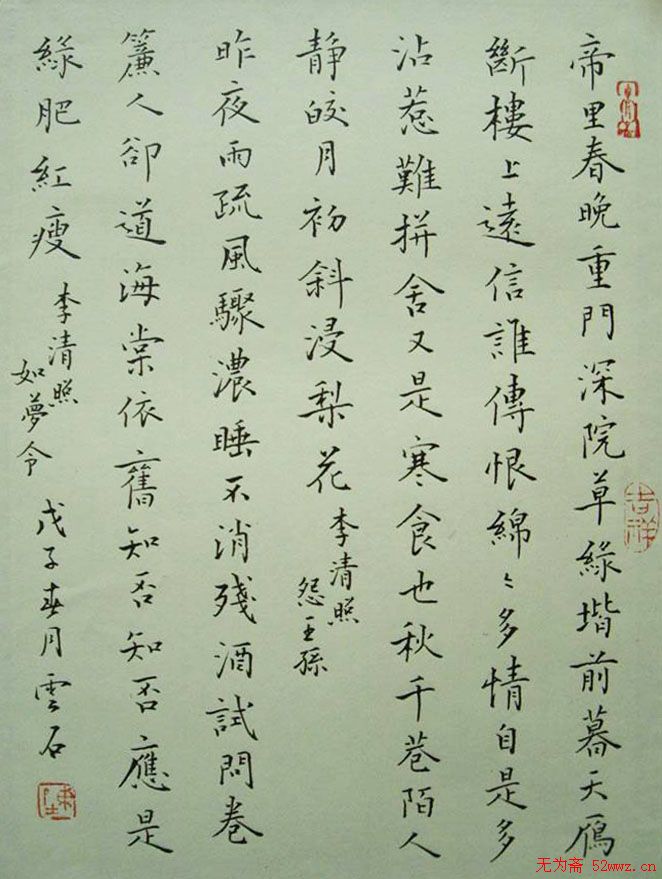 帝里春晚重門深院草綠堦前暮天鴈
斷樓上遠信誰傳恨綿〻多情自是多
沾惹難拼舍又是寒食也秋千巷陌人
靜皎月初斜浸梨花
李清照
怨王孫
昨夜雨疏風驟濃睡不消殘酒試問卷
簾人卻道海棠依舊知否知否應是
綠肥紅瘦
李清照
如夢令
戊子春月雲石
吉祥
无为斋 52wwz.cn